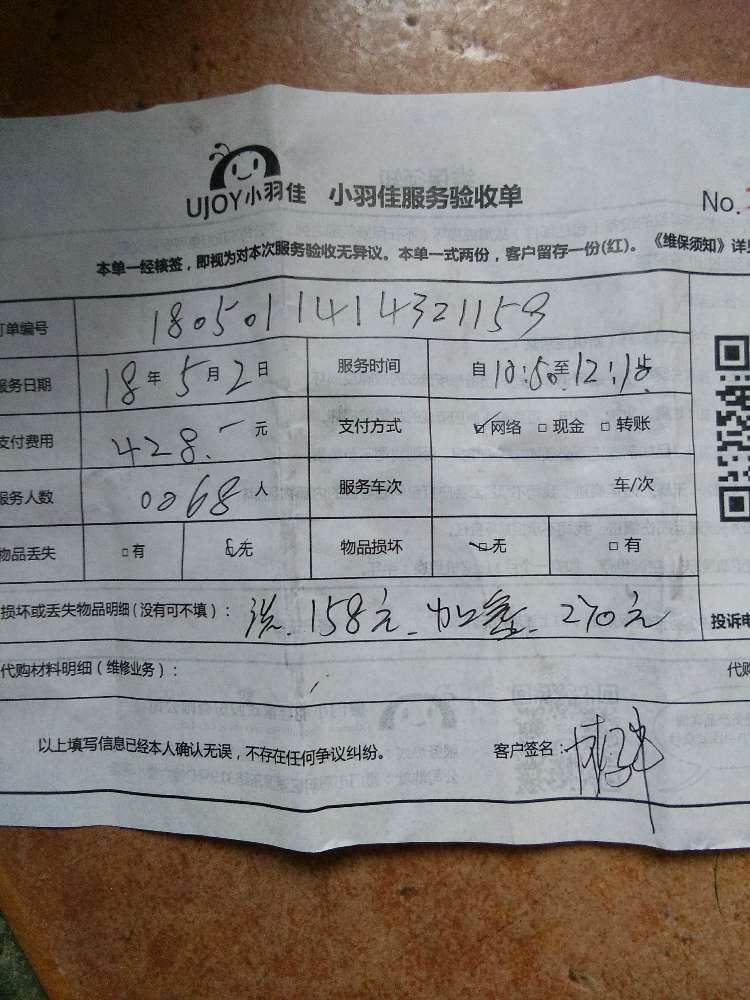 UJOY小羽佳 小羽佳服务验收单
No.
本单一经核签，即视为对本次服务验收无异议。本单一式两份，客户留存一份(红)。《维保须知》详见
订单编号 1805011414321159
服务日期 18年5月2日 服务时间 自10:50至12:18步
支付费用 428.-元 支付方式 ☑网络 □现金 □转账
服务人数 0068人 服务车次 车/次
物品丢失 □有 ☑无 物品损坏 ☑无 □有
损坏或丢失物品明细(没有可不填)： 洗.158元.加氨.270元
投诉电
代购材料明细(维修业务)：
代购
以上填写信息已经本人确认无误，不存在任何争议纠纷。 客户签名：